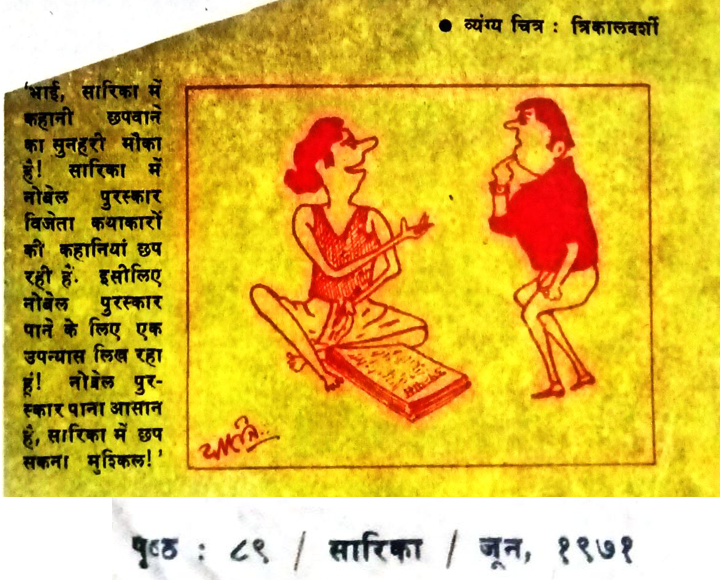 ● व्यंग्य चित्र : त्रिकालदर्शी
'भाई, सारिका में
कहानी छपवाने
का सुनहरी मौका
है! सारिका में
नोबेल पुरस्कार
विजेता कथाकारों
की कहानियां छप
रही हैं. इसीलिए
नोबेल पुरस्कार
पाने के लिए एक
उपन्यास लिख रहा
हूं! नोबेल पुर-
स्कार पाना आसान
है, सारिका में छप
सकना मुश्किल!'
पृष्ठ : ८९ / सारिका / जून, १९७१